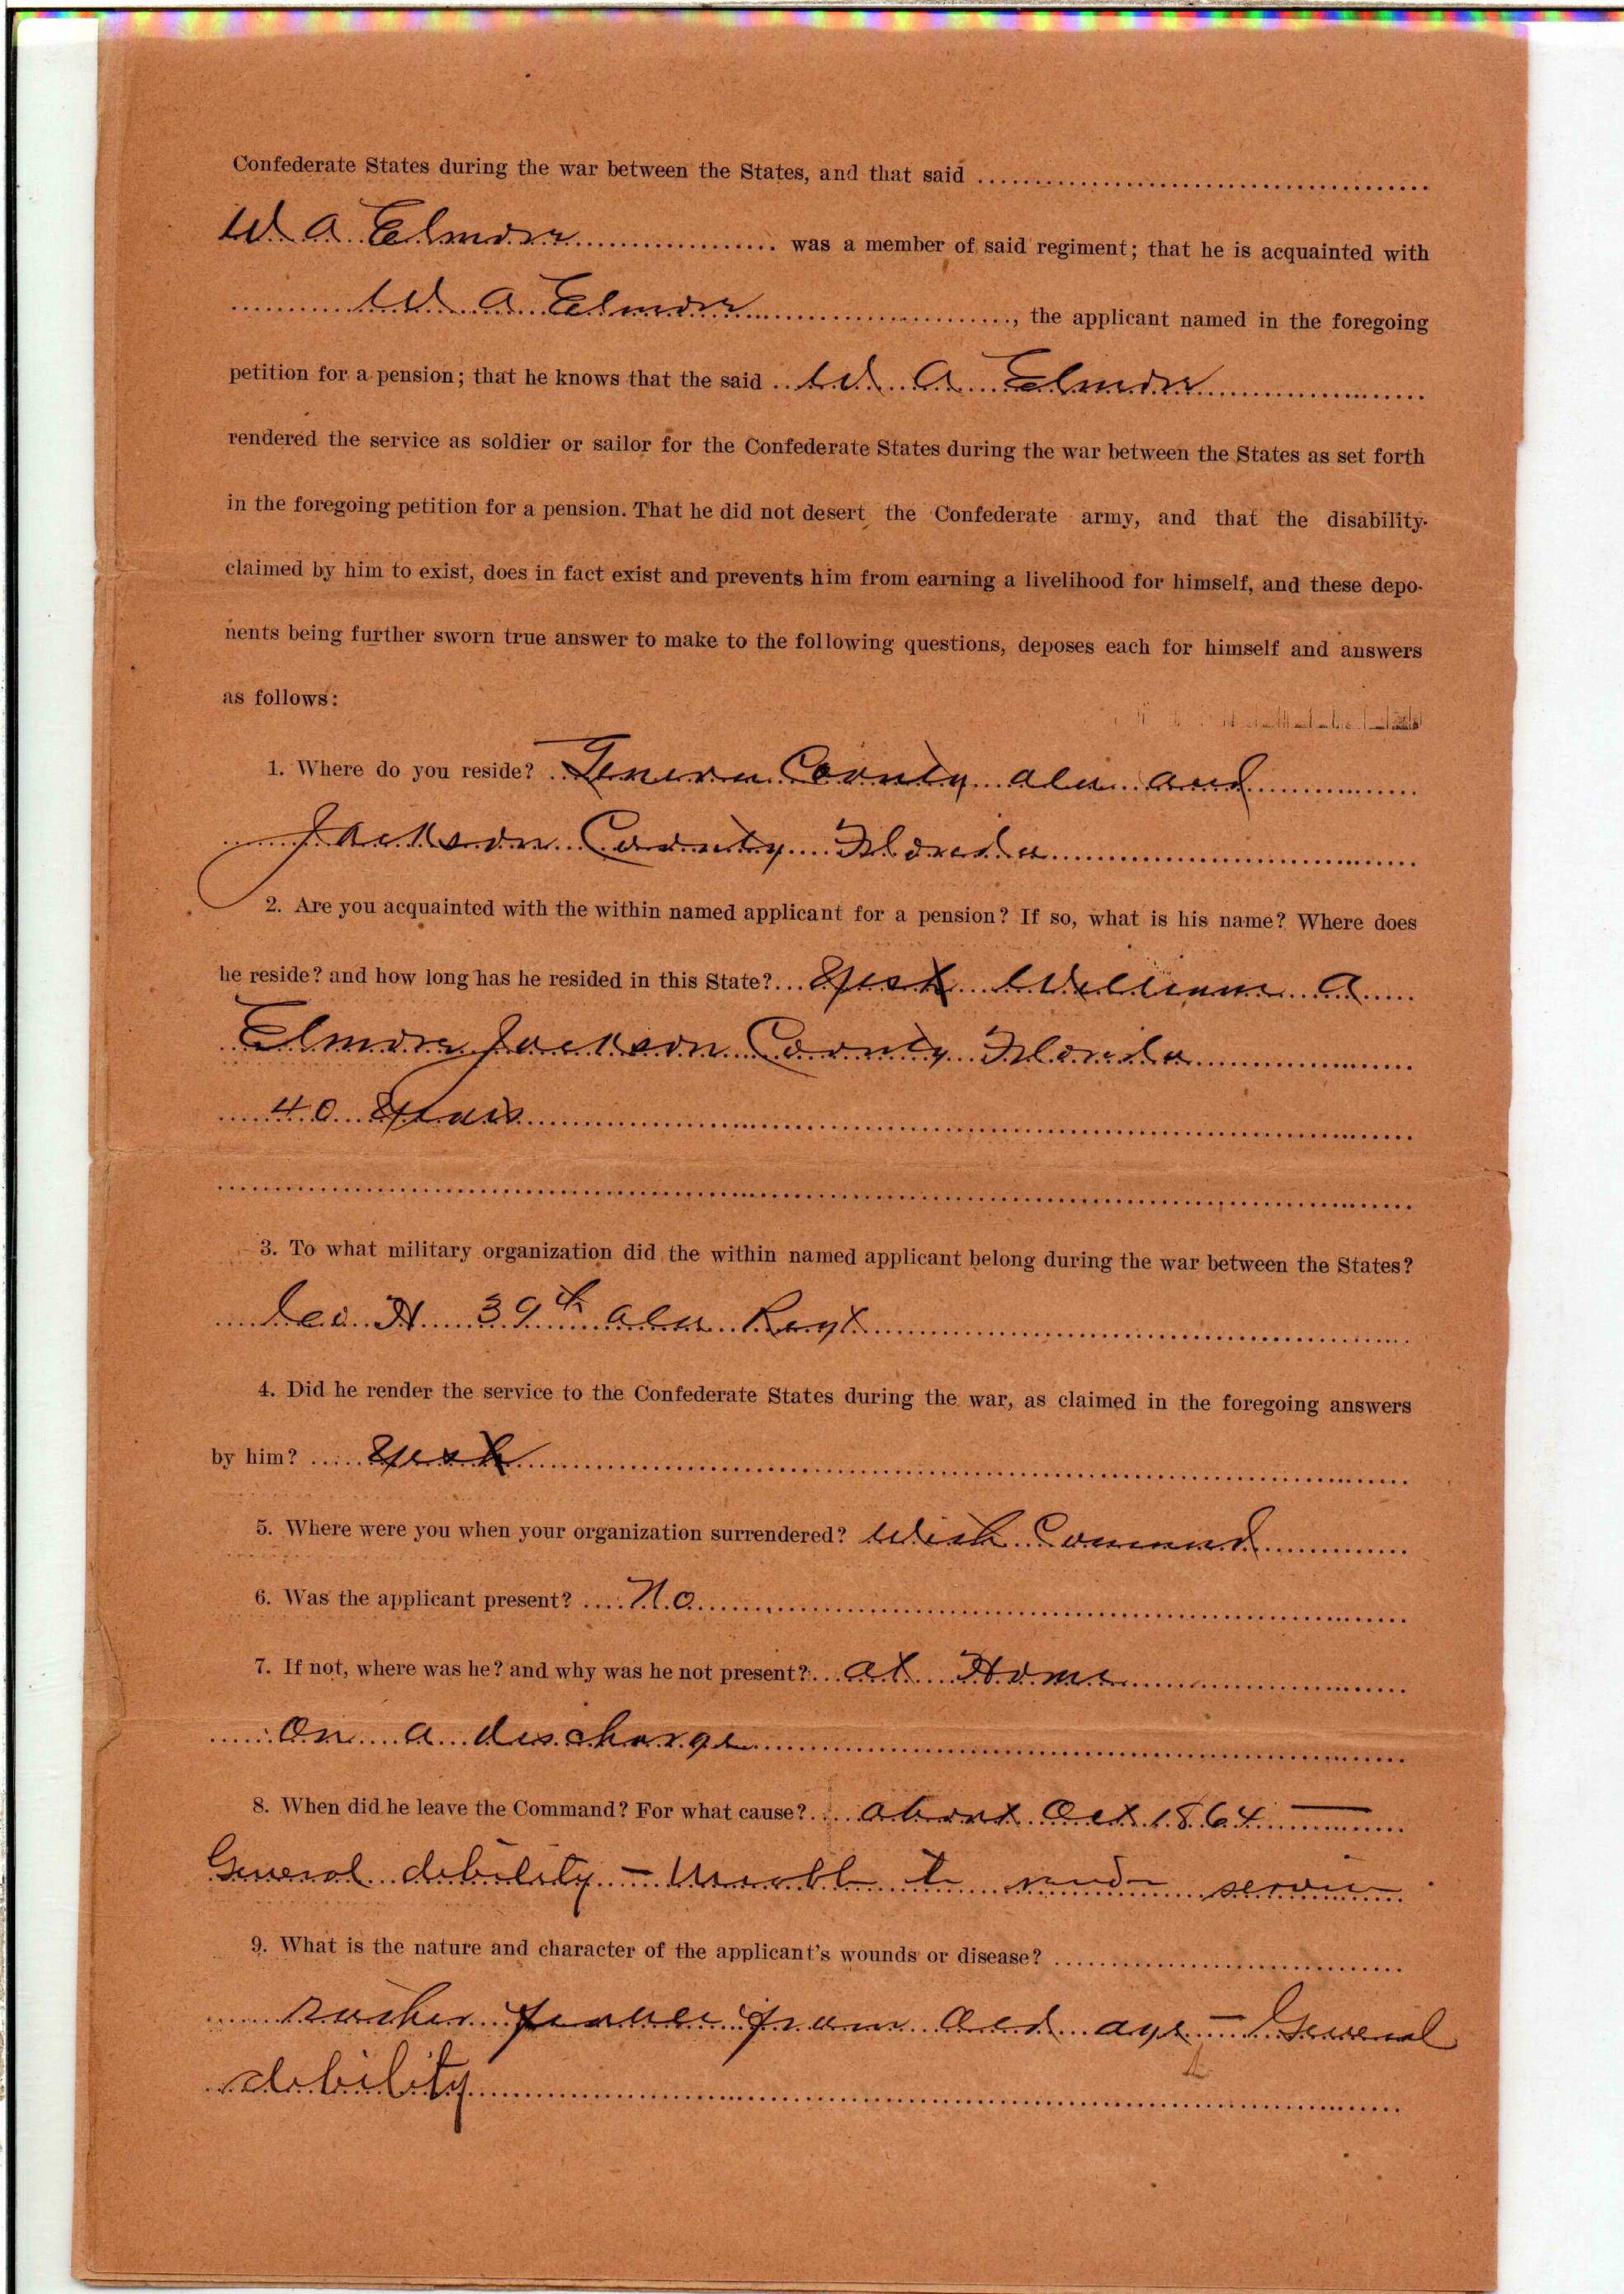 Confederate States during the war between the States, and that said
W A Elmore was a member of said regiment; that he is acquainted with
W A Elmore, the applicant named in the foregoing
petition for a pension; that he knows that the said W A Elmore
rendered the service as soldier or sailor for the Confederate States during the war between the States as set forth
in the foregoing petition for a pension. That he did not desert the Confederate army, and that the disability
claimed by him to exist, does in fact exist and prevents him from earning a livelihood for himself, and these depo-
nents being further sworn true answer to make to the following questions, deposes each for himself and answers
as follows:
1. Where do you reside? Geneva County Ala and
Jackson County Florida
2. Are you acquainted with the within named applicant for a pension? If so, what is his name? Where does
he reside? and how long has he resided in this State? Yes William A
Elmore Jackson County Florida
40 Years
3. To what military organization did the within named applicant belong during the war between the States?
Co. H 39th Ala Regt
4. Did he render the service to the Confederate States during the war, as claimed in the foregoing answers
by him? Yes
5. Where were you when your organization surrendered? With Command
6. Was the applicant present? No
7. If not, where was he? and why was he not present? at Home
On a discharge
8. When did he leave the Command? For what cause? about Oct 1864 —
General debility — Unable to render service
9. What is the nature and character of the applicant's wounds or disease?
rather from age — General
debility